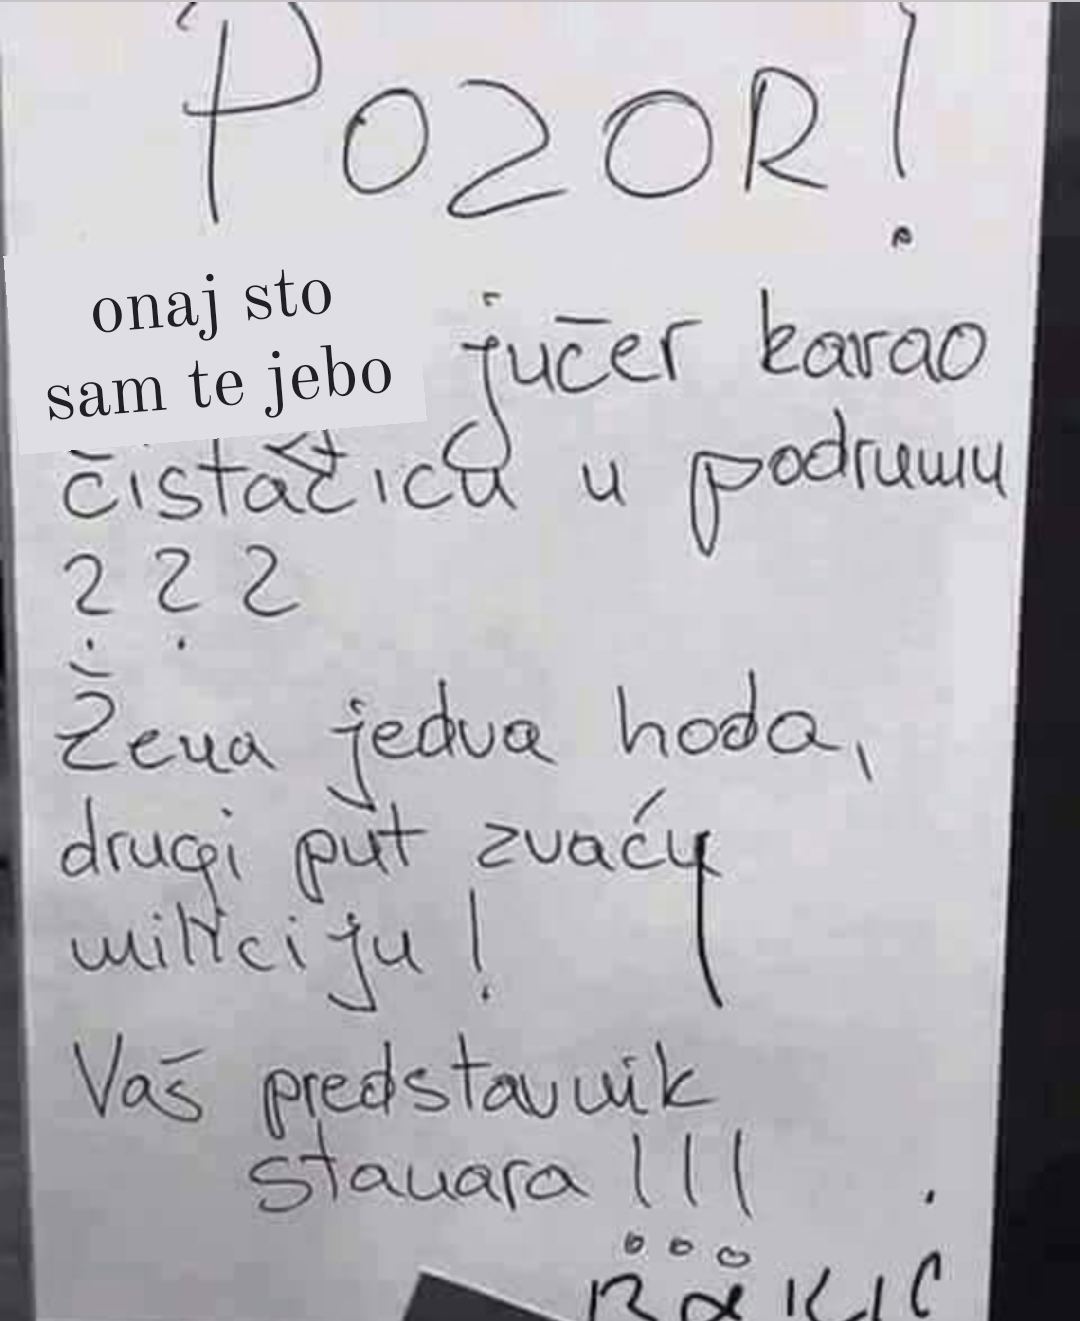 POZOR!
onaj sto
sam te jebo jučer karao
čistačicu u podrumu
???
Žena jedva hoda,
drugi put zvaću
miliciju!
Vaš predstavnik
stanara!!!